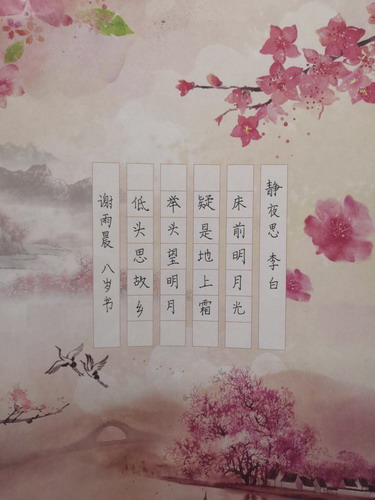 静夜思 李白
床前明月光
疑是地上霜
举头望明月
低头思故乡
谢雨晨 八岁书